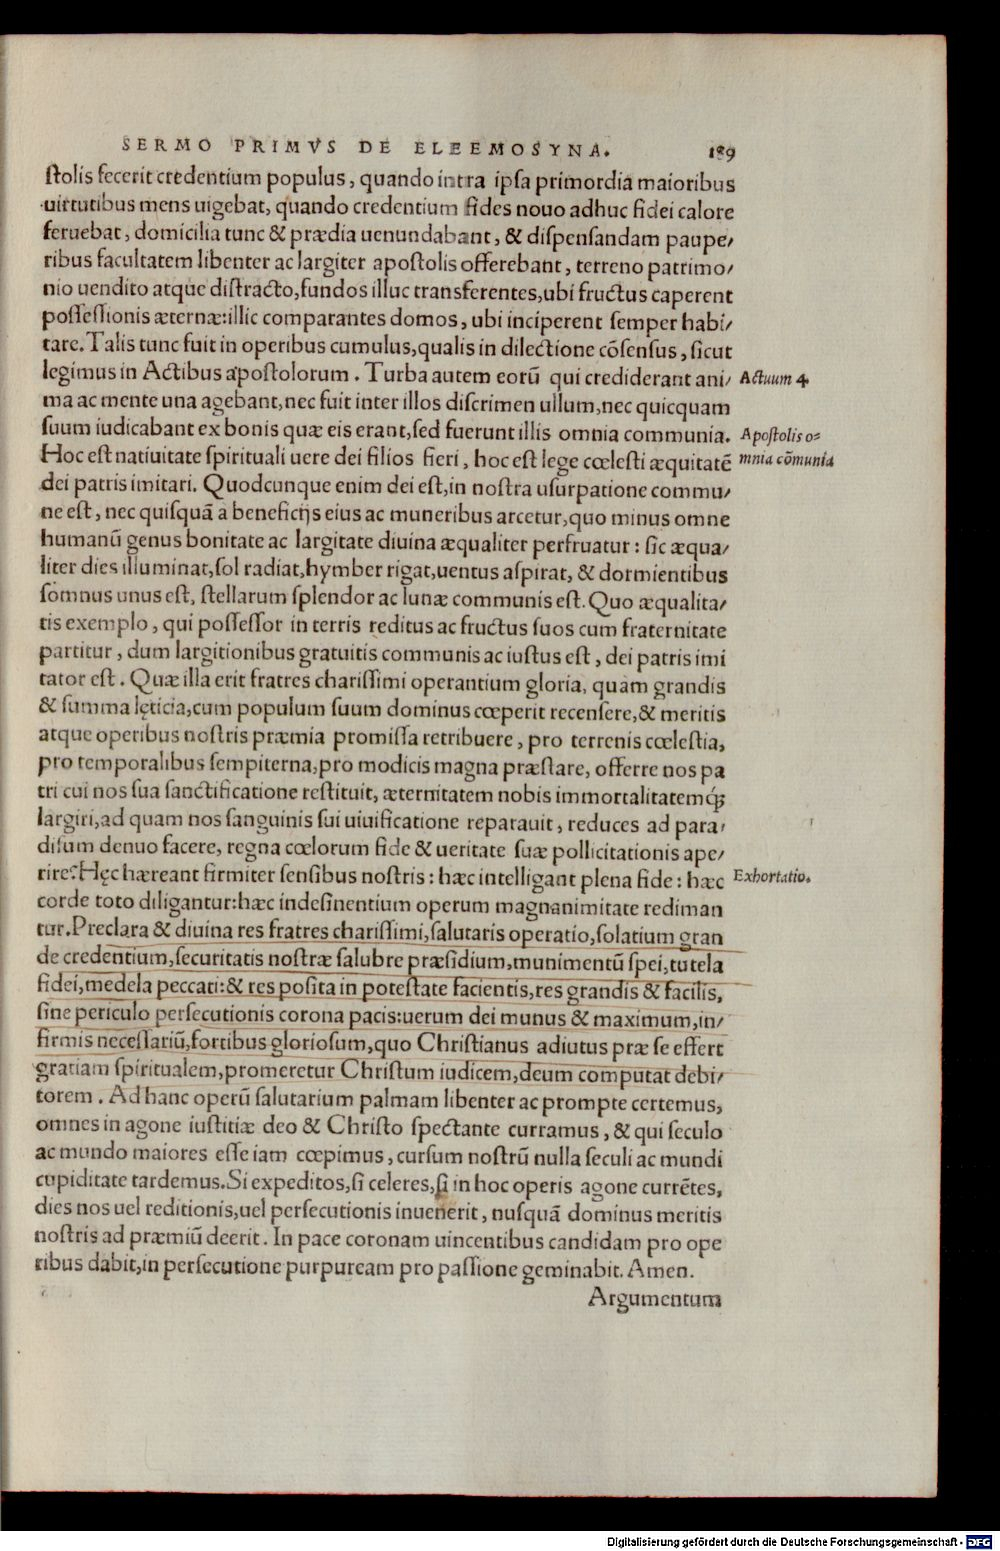 SERMO PRIMVS DE ELEEMOSYNA. 189
ſtolis fecerit credentium populus, quando intra ipſa primordia maioribus
uirtutibus mens uigebat, quando credentium fides nouo adhuc fidei calore
feruebat, domicilia tunc & prædia uenundabant, & diſpenſandam paupe/
ribus facultatem libenter ac largiter apoſtolis offerebant, terreno patrimo/
nio uendito atque diſtracto, fundos illuc transferentes, ubi fructus caperent
poſſeſſionis æternæ: illic comparantes domos, ubi inciperent ſemper habi/
tare. Talis tunc fuit in operibus cumulus, qualis in dilectione cõſenſus, ſicut
legimus in Actibus apoſtolorum. Turba autem eorũ qui crediderant ani/ Actuum 4.
ma ac mente una agebant, nec fuit inter illos diſcrimen ullum, nec quicquam
ſuum iudicabant ex bonis quæ eis erant, ſed fuerunt illis omnia communia. Apoſtolis o=
Hoc eſt natiuitate ſpirituali uere dei filios fieri, hoc eſt lege cœleſti æquitatẽ mnia cõmunia
dei patris imitari. Quodcunque enim dei eſt, in noſtra uſurpatione commu/
ne eſt, nec quiſquã a beneficijs eius ac muneribus arcetur, quo minus omne
humanũ genus bonitate ac largitate diuina æqualiter perfruatur: ſic æqua/
liter dies illuminat, ſol radiat, hymber rigat, uentus aſpirat, & dormientibus
ſomnus unus eſt, ſtellarum ſplendor ac lunæ communis eſt. Quo æqualita/
tis exemplo, qui poſſeſſor in terris reditus ac fructus ſuos cum fraternitate
partitur, dum largitionibus gratuitis communis ac iuſtus eſt, dei patris imi
tator eſt. Quæ illa erit fratres chariſſimi operantium gloria, quam grandis
& ſumma lęticia, cum populum ſuum dominus cœperit recenſere, & meritis
atque operibus noſtris præmia promiſſa retribuere, pro terrenis cœleſtia,
pro temporalibus ſempiterna, pro modicis magna præſtare, offerre nos pa
tri cui nos ſua ſanctificatione reſtituit, æternitatem nobis immortalitatemq́ꝫ
largiri, ad quam nos ſanguinis ſui uiuificatione reparauit, reduces ad para/
diſum denuo facere, regna cœlorum fide & ueritate ſuæ pollicitationis ape/
rire? Hęc hæreant firmiter ſenſibus noſtris: hæc intelligant plena fide: hæc Exhortatio.
corde toto diligantur: hæc indeſinentium operum magnanimitate rediman
tur. Preclara & diuina res fratres chariſſimi, ſalutaris operatio, ſolatium gran
de credentium, ſecuritatis noſtræ ſalubre præſidium, munimentũ ſpei, tutela
fidei, medela peccati: & res poſita in poteſtate facientis, res grandis & facilis,
ſine periculo perſecutionis corona pacis: uerum dei munus & maximum, in/
firmis neceſſariũ, fortibus glorioſum, quo Chriſtianus adiutus præ ſe effert
gratiam ſpiritualem, promeretur Chriſtum iudicem, deum computat debi/
torem. Ad hanc operũ ſalutarium palmam libenter ac prompte certemus,
omnes in agone iuſtitiæ deo & Chriſto ſpectante curramus, & qui ſeculo
ac mundo maiores eſſe iam cœpimus, curſum noſtrũ nulla ſeculi ac mundi
cupiditate tardemus. Si expeditos, ſi celeres, ſi in hoc operis agone currẽtes,
dies nos uel reditionis, uel perſecutionis inuenerit, nuſquã dominus meritis
noſtris ad præmiũ deerit. In pace coronam uincentibus candidam pro ope
ribus dabit, in perſecutione purpuream pro paſſione geminabit. Amen.
Argumentum
Digitalisierung gefördert durch die Deutsche Forschungsgemeinschaft - DFG